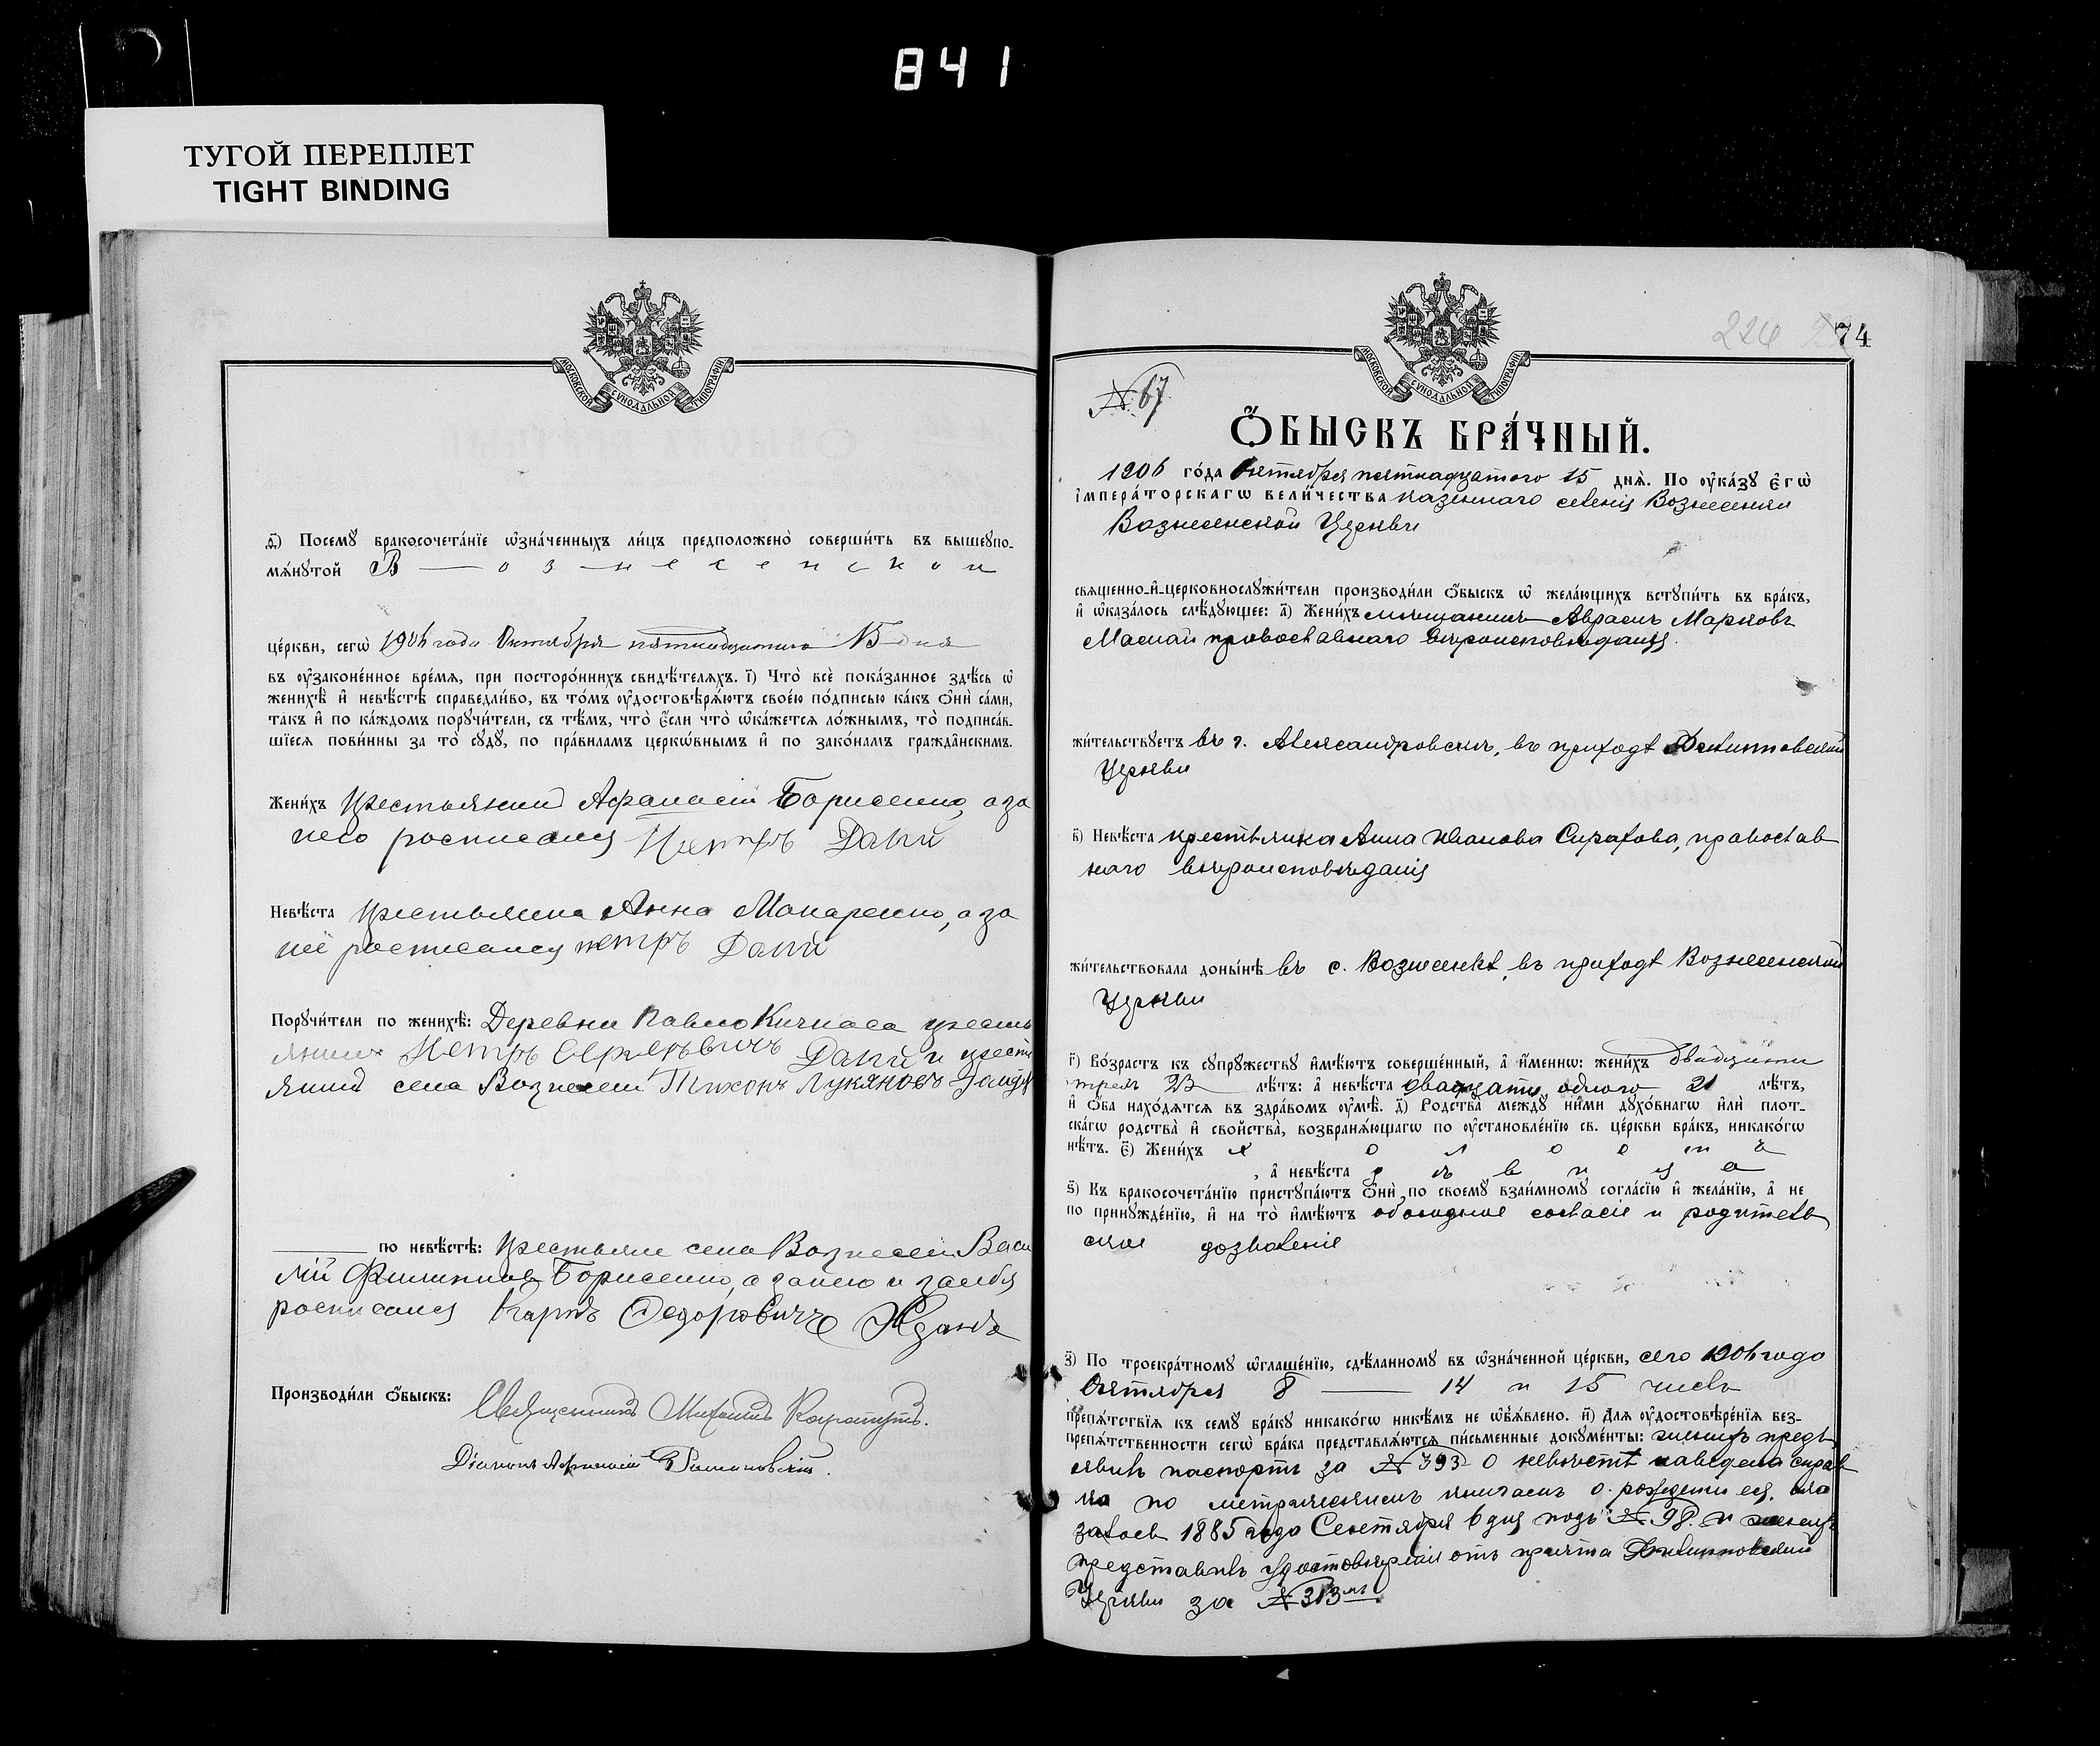 841
ТУГОЙ ПЕРЕПЛЕТ
TIGHT BINDING
МОСКОВСКОЙ СѴНОДАЛЬНОЙ ТИПОГРАФІИ
Посемꙋ бракосочетанїе ѡзначенныхъ лицъ предположено совершить въ вышеꙋпо-
мѧнꙋтой В — о з — н е с е н с к о й
церкви, сегѡ 1906 года Октября пятнадцатого 15 дня
въ оузаконенное время, при постороннихъ свидѣтеляхъ. і) Что все показанное здѣсь ѡ
женихѣ и невѣстѣ справедливо, въ томъ оудостовѣрѧютъ своею подписью какъ ѻни сами,
такъ и по каждомъ порꙋчители, съ тѣмъ, что если что ѡкажется ложнымъ, то подписав-
шїесѧ повинны за то сꙋдꙋ, по правиламъ церковнымъ и по законамъ гражданскимъ.
Женихъ Крестьянинъ Афанасій Борисенко, а за
него росписался Петръ Далій
Невѣста Крестьянка Анна Макаренко, а за
неё росписался петръ Далій
Порꙋчители по женихѣ: Деревни Павло Кичкаса крест
янинъ Петръ Сергѣевичъ Далій и крест
янинъ села Вознесен Тихонъ Лукяновъ
по невѣстѣ: Крестьяне села Вознесен Васи
лій Филиповъ Борисенко, а за него и за себя
росписался Карпъ Федоровичъ Жданъ
Производили ѻбыскъ: Священникъ Михаилъ
Діаконъ Афанасій
224 74
МОСКОВСКОЙ СѴНОДАЛЬНОЙ ТИПОГРАФІИ
№ 67
Ѻбыскъ брачный.
1906 года Октября пятнадцатого 15 дня. По оуказꙋ Егѡ
Императорскагѡ величества казеннаго селенія Вознесенки
Вознесенской Церкви
свѧщенно-и-церковнослꙋжители производили ѻбыскъ ѡ желающихъ встꙋпить въ бракъ,
и ѡказалось слѣдꙋющее: а) Женихъ мещанинъ Аврамъ Марковъ
православнаго вѣроисповѣданія.
жительствꙋетъ въ г. Александровскѣ, въ приходѣ
Церкви
в) Невѣста крестьянка Анна Иванова Сирахова, православ
наго вѣроисповѣданія
жительствовала донынѣ въ с. Вознесенкѣ, въ приходѣ Вознесенской
Церкви
г) Возрастъ къ сꙋпрꙋжествꙋ имѣютъ совершенный, а именнѡ: женихъ двадцати
трехъ 23 лѣтъ: а невѣста двадцати одного 21 лѣтъ,
и ѻба находѧтся въ здравомъ оумѣ. д) Родства междꙋ ними дꙋховнагѡ или плот-
скагѡ родства и свойства, возбранѧющагѡ по оустановленїю св. церкви бракъ, никакогѡ
нѣтъ. е) Женихъ х о л о с т ъ
, а невѣста д ѣ в и ц а
ѕ) Къ бракосочетанїю пристꙋпаютъ ѻни, по своемꙋ взаимномꙋ согласїю и желанїю, а не
по принꙋжденїю, и на то имѣютъ обоюдное согласіе и родитель
ское дозволеніе
з) По троекратномꙋ ѡглашенїю, сдѣланномꙋ въ ѡзначенной церкви, сего 1906 года
Октября 8 — 14 и 15 числъ
препѧтствїѧ къ семꙋ бракꙋ никакогѡ никѣмъ не ѡбъѧвлено. и) Длѧ оудостовѣренїѧ без-
препѧтственности сегѡ брака представлѧютсѧ письменные докꙋменты: женихъ предъ
явилъ паспортъ за № 393 о невѣстѣ наведена справ
ка по метрическимъ книгамъ о рождении ея, ока
залось 1885 года Сентября 6 дня подъ № 98 и женихъ
представилъ удостовѣреніе отъ причта
Церкви за № 313мъ